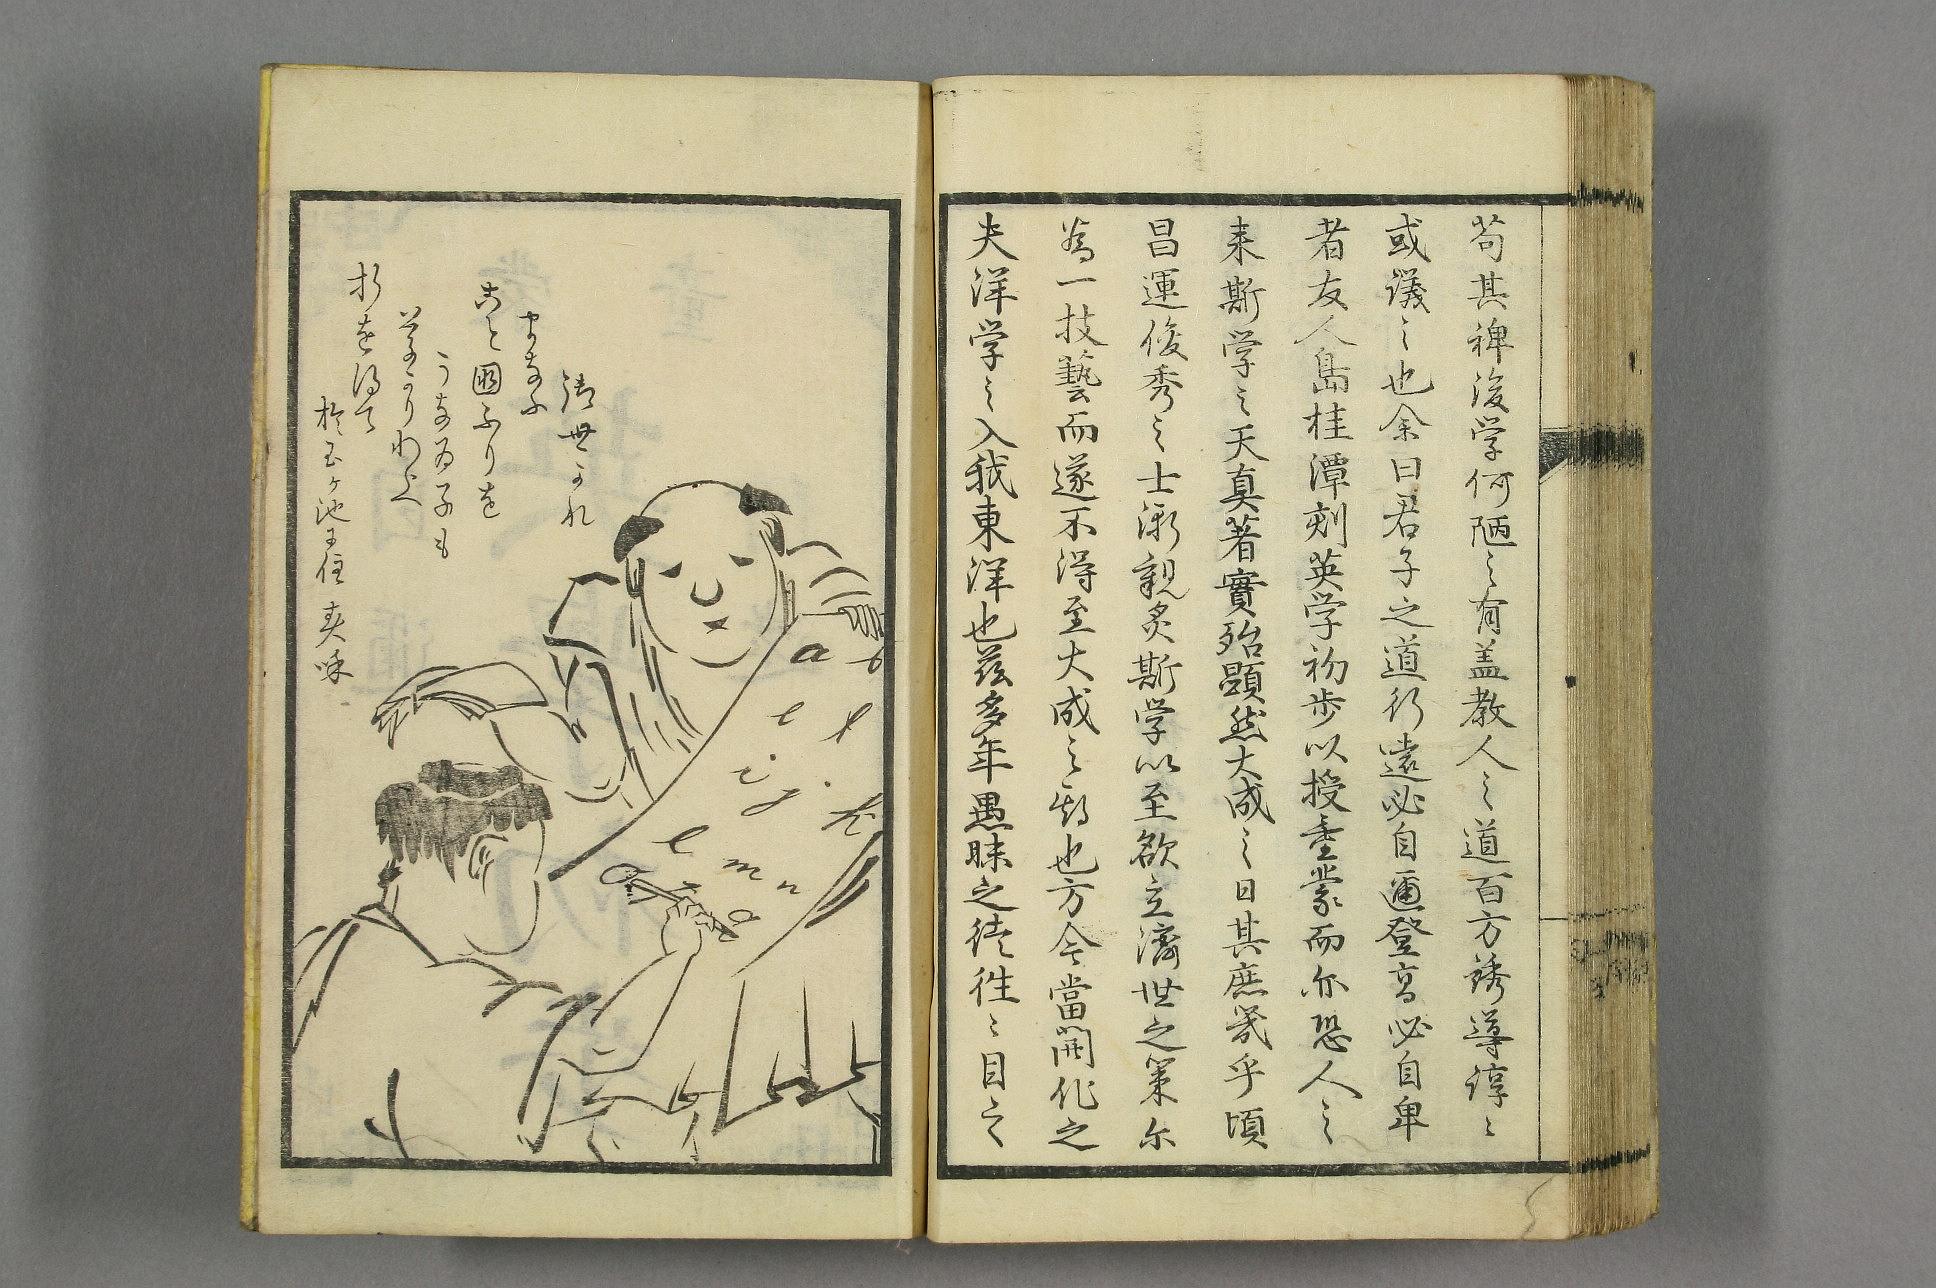 於玉ヶ池ニ住
折を得て
草かりわらへ
うなゐ子も
こと國ふりを
まなふ
御世かな
a b
e f
i j k
l m n
o
夫洋学之入我東洋也茲多年愚昧之徒往々目之
為一技藝而遂不得至大成之期也方今當開化之
昌運俊秀之士漸親炙斯学以至欲立濟世之策尓
来斯学之天真著實殆顕然大成之日其庶幾乎頃
者友人島桂潭刻英学初歩以授童蒙而尓恐人之
或議之也余曰君子之道行遠必自邇登高必自卑
苟其裨後学何陋之有盖教人之道百方誘導諄々